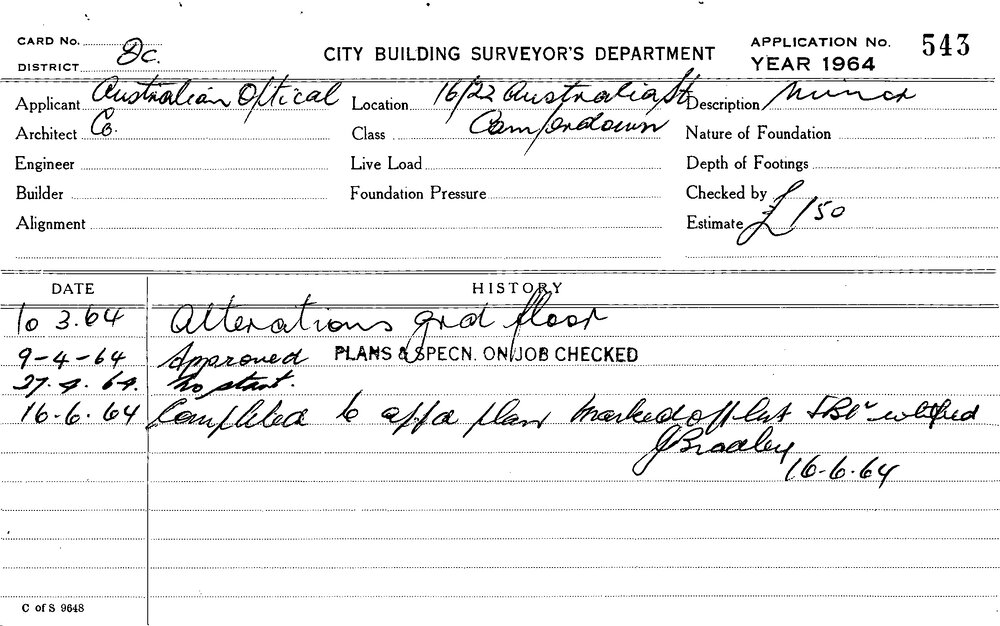 CARD No.
DISTRICT Dc.
CITY BUILDING SURVEYOR'S DEPARTMENT
APPLICATION No. 543
YEAR 1964
Applicant Australian Optical Location 16/22 Australia St Description Minor
Architect Co. Class Camperdown Nature of Foundation
Engineer Live Load Depth of Footings
Builder Foundation Pressure Checked by
Alignment Estimate £150
DATE HISTORY
10 3.64 Alterations grd floor
9-4-64 Approved PLANS & SPECN. ON JOB CHECKED
27.4.64. No start.
16-6.64 Completed to appd plan marked off list
J Bradley
16-6.64
C of S 9648